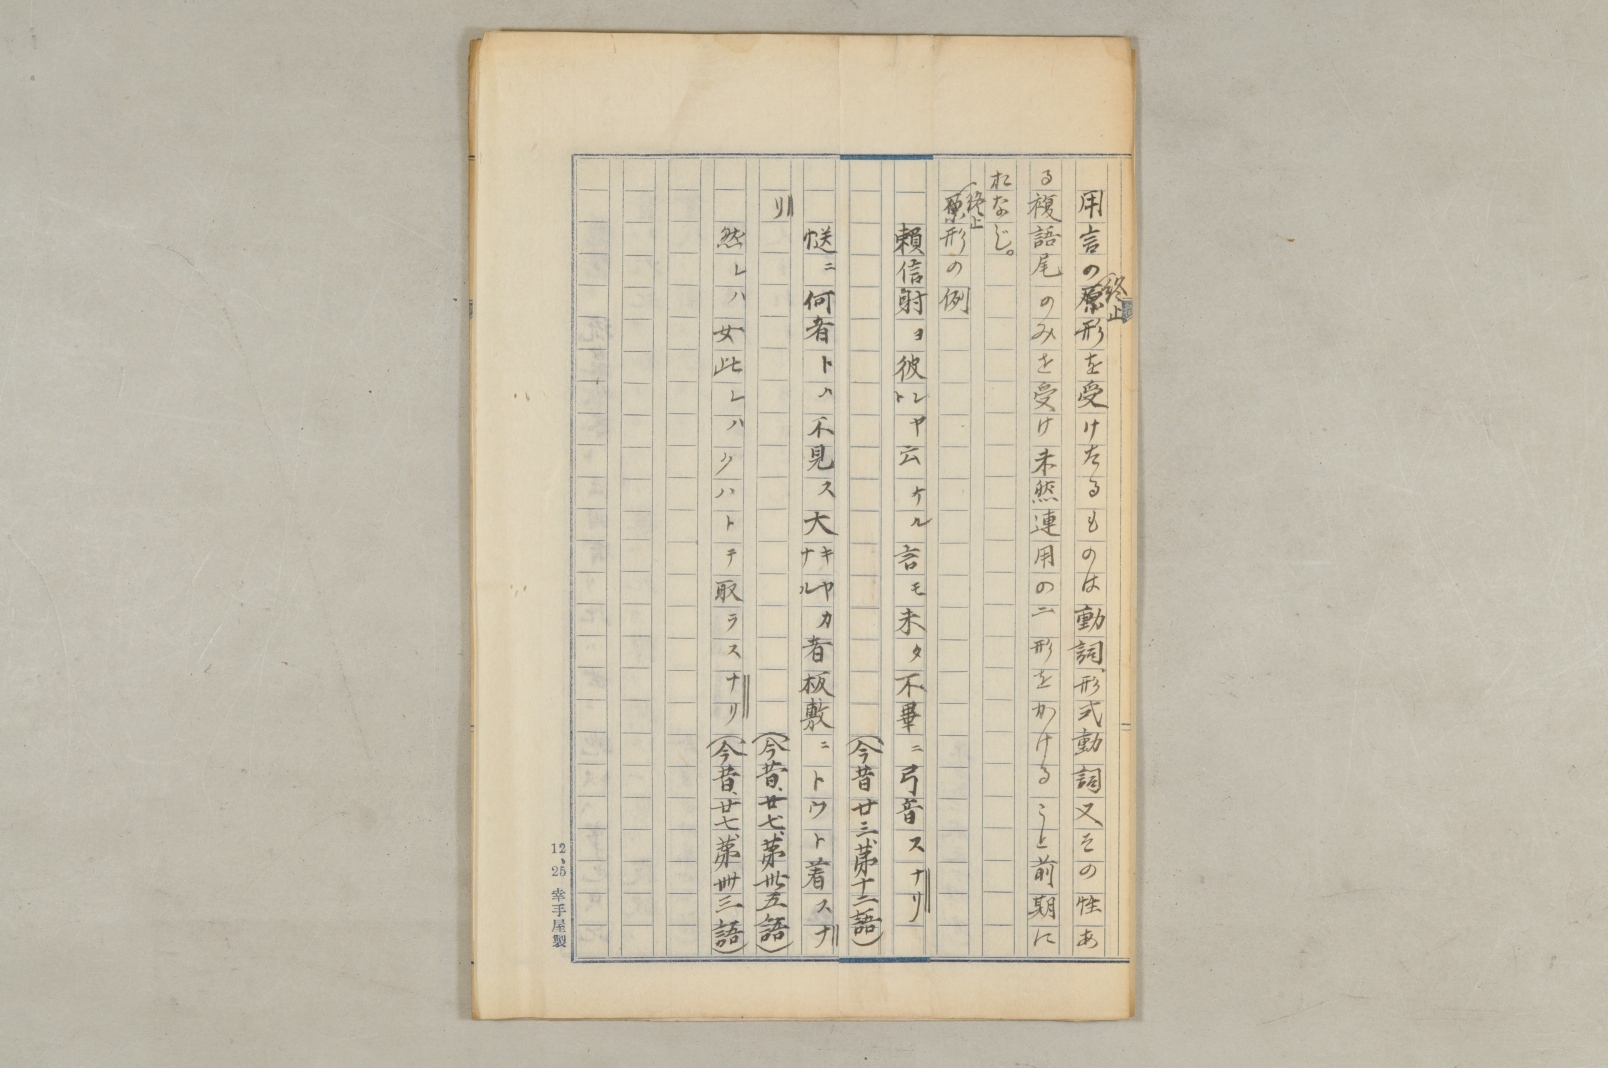 用言の終止原形を受けたるものは動詞、形式動詞又その性あ
る複語尾のみを受け未然連用の二形をかけること前期に
おなじ。
終止原形の例
頼信射ヨ彼レトヤ云ケル言モ未タ不畢ニ弓音スナリ
(今昔廿三、第十二語)
㥨ニ何者トハ不見ス大キナルヤカ者板敷ニトウト着スナ
リ
(今昔、廿七、第卅五語)
然レハ女此レハクハトテ取ラスナリ
(今昔、廿七、第卌三語)
12.25 幸手屋製